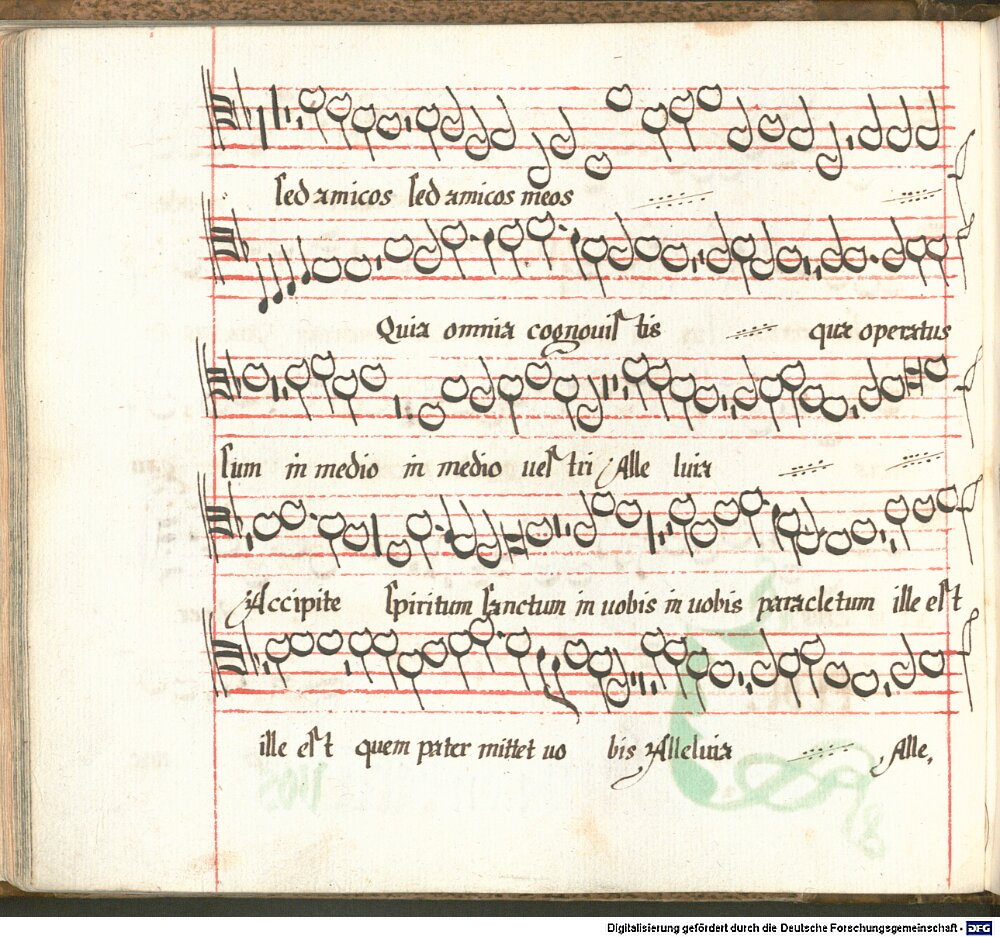 sed amicos sed amicos meos
Quia omnia cognouistis quæ operatus
sum in medio in medio uestri Alle luia
Accipite spiritum sanctum in uobis in uobis paracletum ille est
ille est quem pater mittet uo bis Alleluia Alle,
Digitalisierung gefördert durch die Deutsche Forschungsgemeinschaft - DFG